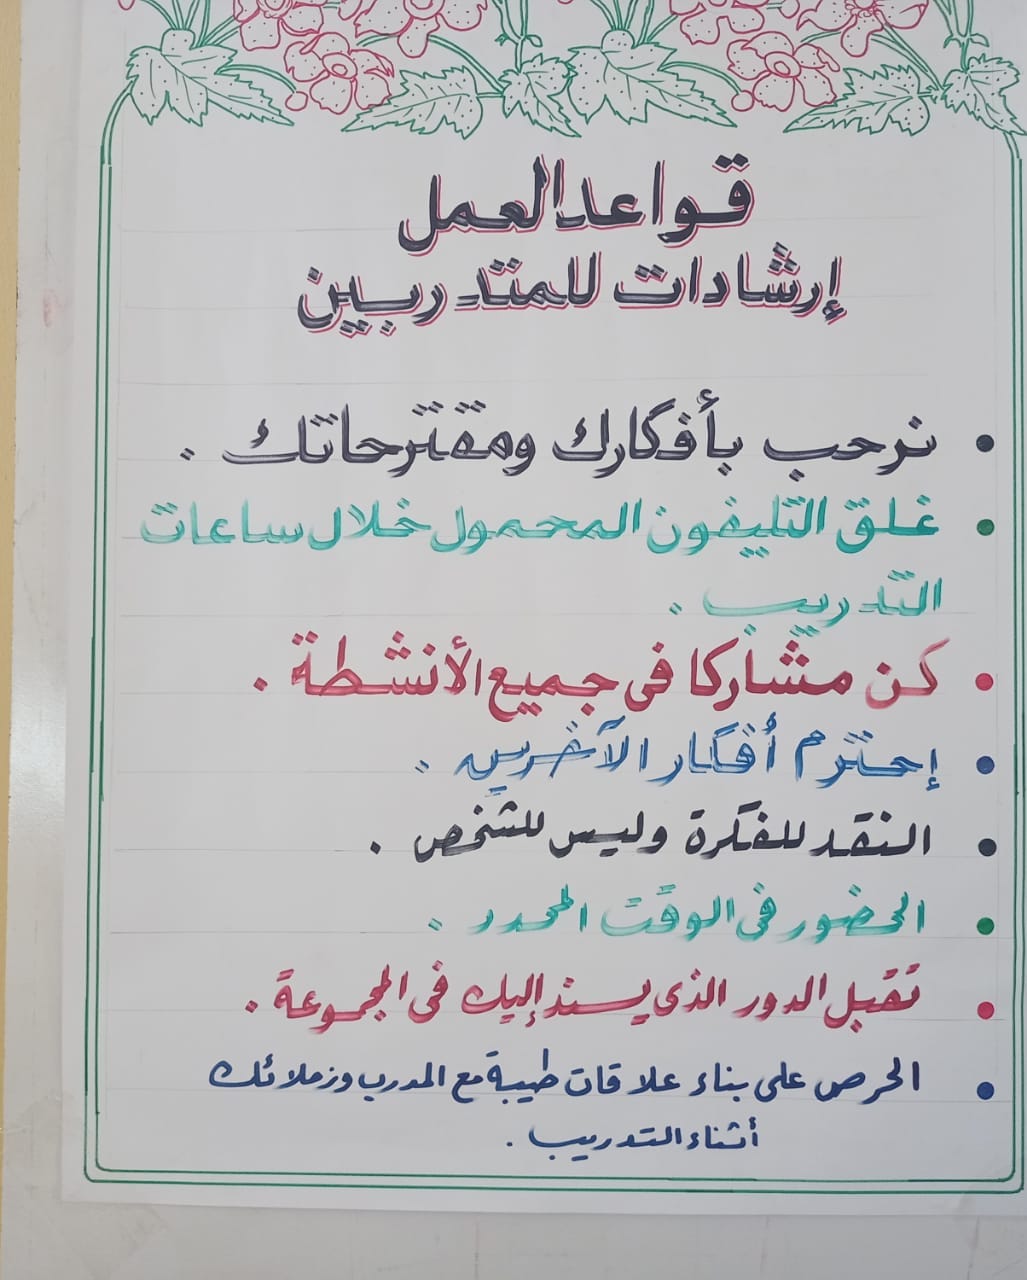 قواعد العمل
إرشادات للمتدربين
• نرحب بأفكارك ومقترحاتك .
• غلق التليفون المحمول خلال ساعات
التدريب .
• كن مشاركا فى جميع الأنشطة .
• إحترم أفكار الآخرين .
• النقد للفكرة وليس للشخص .
• الحضور فى الوقت المحدد .
• تقبل الدور الذى يسند إليك فى المجموعة .
• الحرص على بناء علاقات طيبة مع المدرب وزملائك
أثناء التدريب .